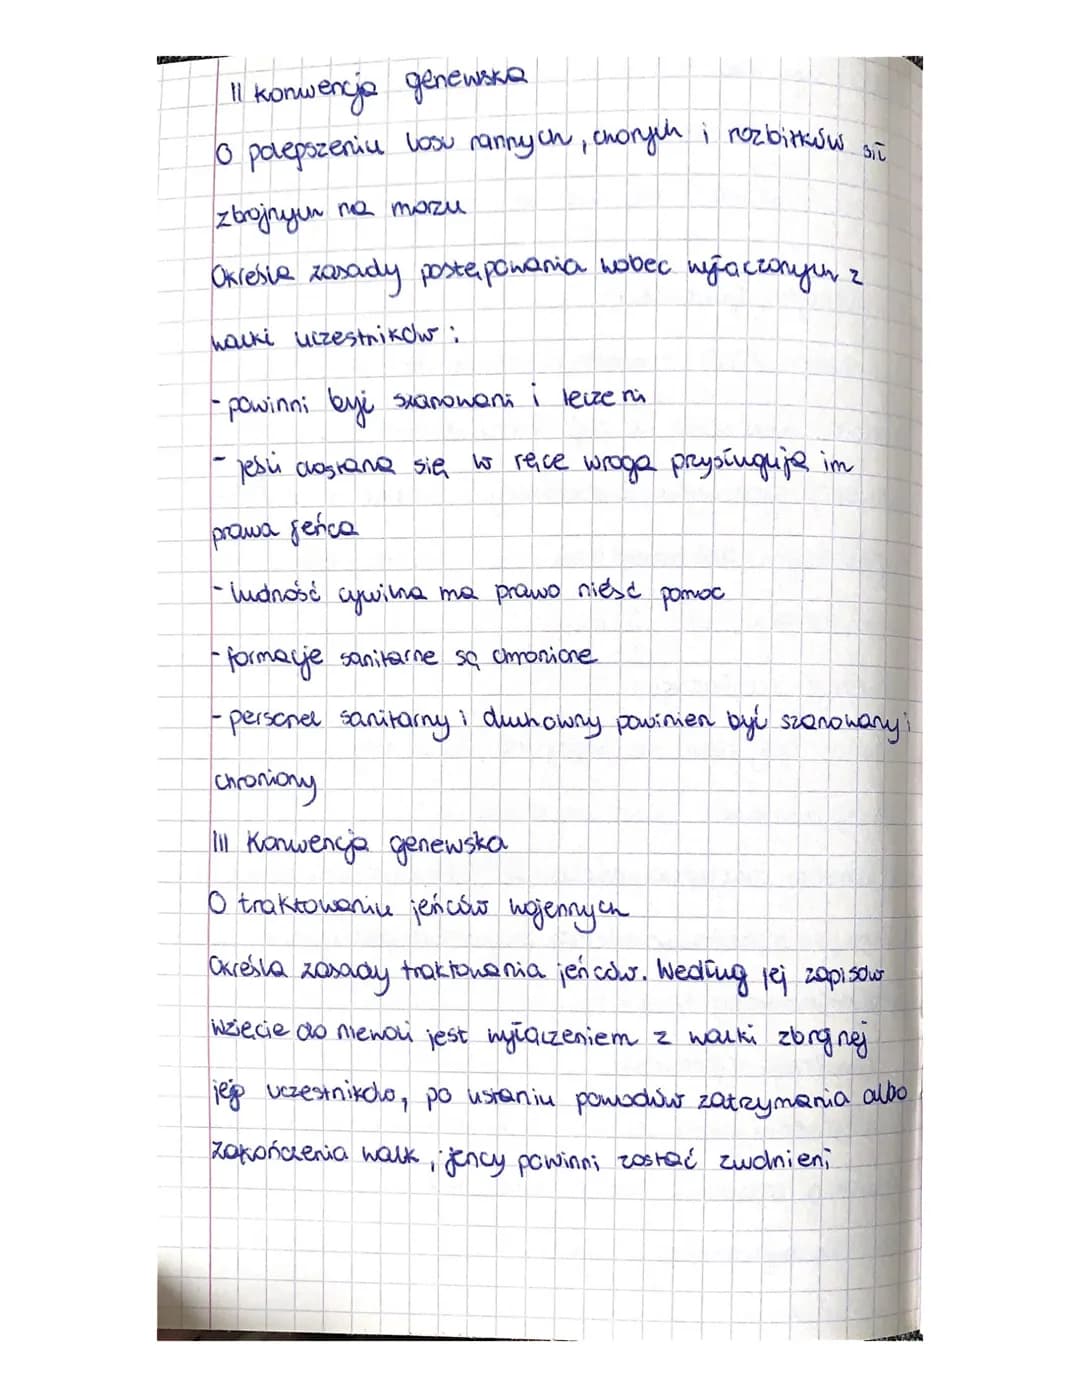 II konwencja genewska
O polepszeniu losu rannych, chorych i rozbitków sił
zbrojnych na morzu
Określa zasady postępowania wobec wyłączonych z
walki uczestników:
- powinni być szanowani i leczeni
- jeśli dostaną się w ręce wroga przysługują im
prawa jeńca
- ludność cywilna ma prawo nieść pomoc
- formacje sanitarne są chronione
- personel sanitarny i duchowny powinien być szanowany i
chroniony
III Konwencja genewska
O traktowaniu jeńców wojennych
Określa zasady traktowania jeńców. Według jej zapisów
wzięcie do niewoli jest wyłączeniem z walki zbrojnej
jej uczestników, po ustaniu powodów zatrzymania albo
zakończenia walk, jeńcy powinni zostać zwolnieni